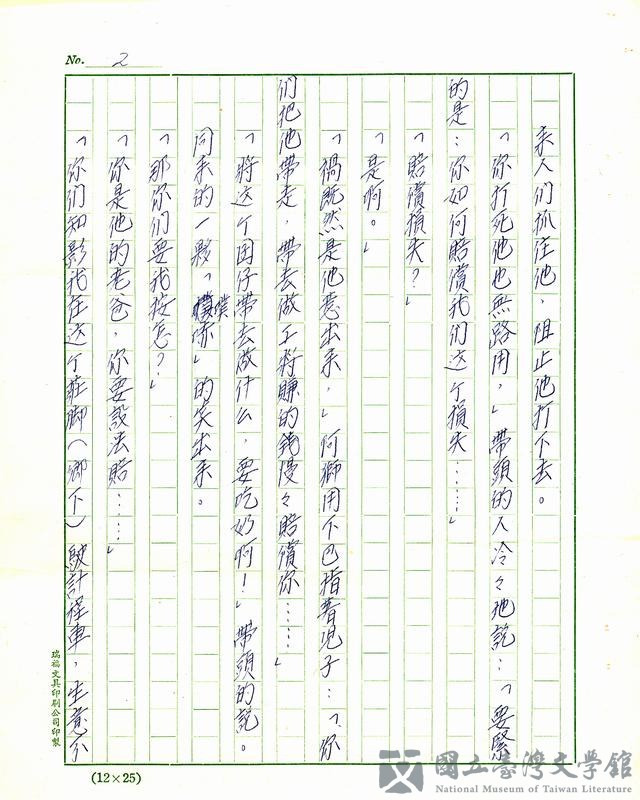 No. 2
来人們抓住他，阻止他打下去。
「你打死他也無路用，」帶頭的人冷々地說：「要緊
的是：你如何賠償我們这个損失……」
「賠償損失？」
「是啊。」
「禍既然是他惹出来，」阿獅用下巴指著児子：「你
们把他帶走，帶去做工将賺的錢慢々賠償你……」
「将这个囝仔帶去做什么，要吃奶啊！」帶頭的說。
同来的一夥「噗哧」的笑出来。
「那你们要我按怎？」
「你是他的老爸，你要設法賠……」
「你们知影我在这个莊脚（鄉下）駛計程車，生意不
瑞福文具印刷公司印製
(12×25)
國立臺灣文學館
National Museum of Taiwan Literature